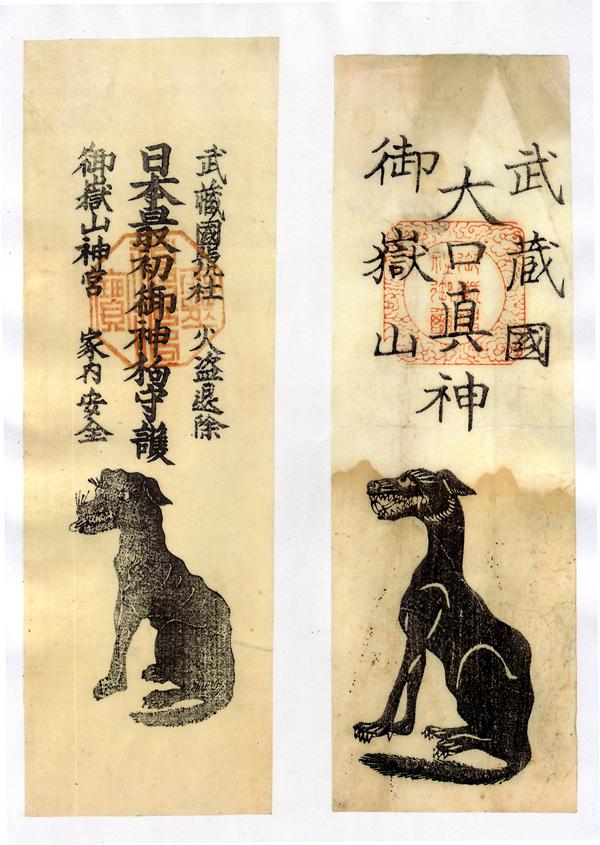 武蔵國
大口真神
御嶽山
武藏國號社 火盗退除
日本最初御神狗守護
御嶽山神宮 家内安全